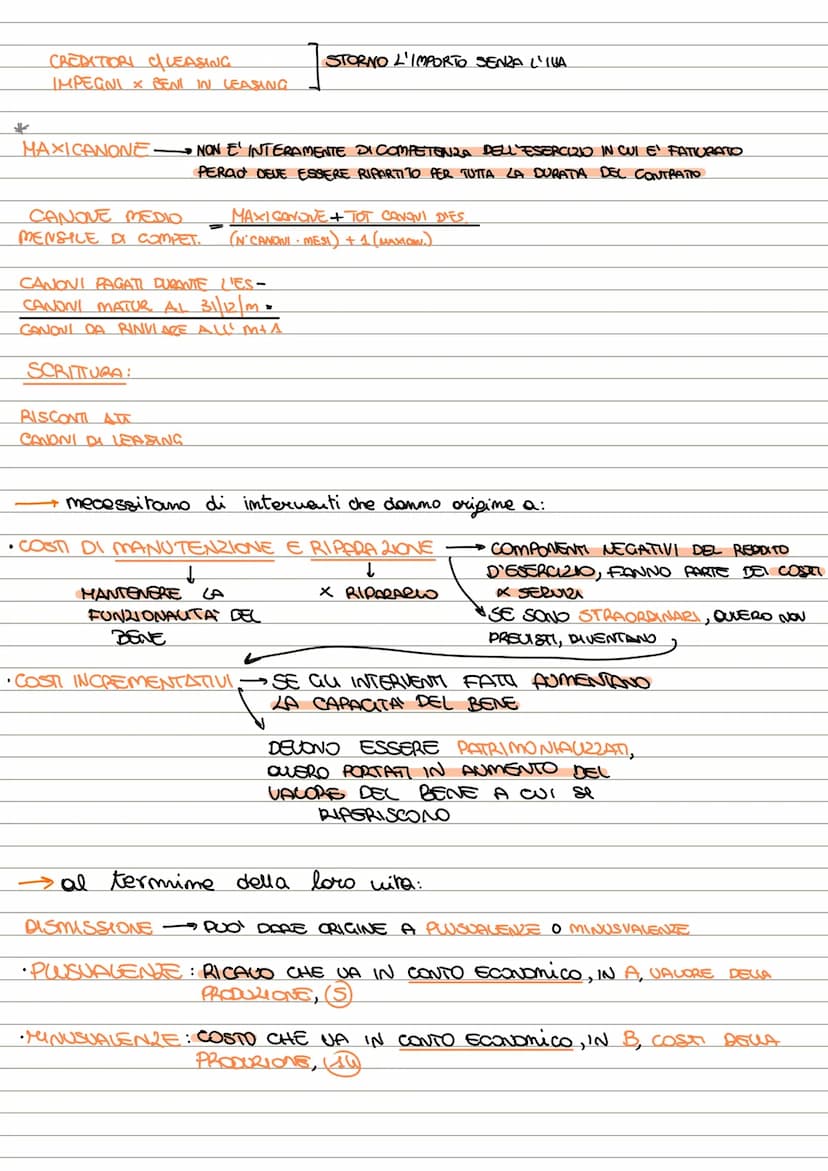 CREDITORI C/LEASING
IMPEGNI X BENI IN LEASING
STORNO L'IMPORTO SENZA L'IVA
*
MAXICANONE → NON E' INTERAMENTE DI COMPETENZA DELL'ESERCIZIO IN CUI E' FATTURATO
PERCIO' DEVE ESSERE RIPARTITO PER TUTTA LA DURATA DEL CONTRATTO
CANONE MEDIO
MENSILE DI COMPET. = MAXICANONE + TOT CANONI D'ES.
(N° CANONI · MESI) + 1 (MAXICAN.)
CANONI PAGATI DURANTE L'ES -
CANONI MATUR AL 31/12/m =
CANONI DA RINVIARE ALL' m+1
SCRITTURA:
RISCONTI ATT
CANONI DI LEASING
→ necessitano di interventi che danno origine a:
· COSTI DI MANUTENZIONE E RIPARAZIONE → COMPONENTI NEGATIVI DEL REDDITO
D'ESERCIZIO, FANNO PARTE DEI COSTI
X SERVIZI
MANTENERE LA
FUNZIONALITA' DEL
BENE
X RIPARARLO
SE SONO STRAORDINARI, OVVERO NON
PREVISTI, DIVENTANO
· COSTI INCREMENTATIVI → SE GLI INTERVENTI FATTI AUMENTANO
LA CAPACITA' DEL BENE
DEVONO ESSERE PATRIMONIALIZZATI,
OVVERO PORTATI IN AUMENTO DEL
VALORE DEL BENE A CUI SI
RIFERISCONO
→ al termine della loro vita:
DISMISSIONE → PUO' DARE ORIGINE A PLUSVALENZE O MINUSVALENZE
· PLUSVALENZE: RICAVO CHE VA IN CONTO ECONOMICO, IN A, VALORE DELLA
PRODUZIONE, (5)
· MINUSVALENZE: COSTO CHE VA IN CONTO ECONOMICO, IN B, COSTI DELLA
PRODUZIONE, (14)